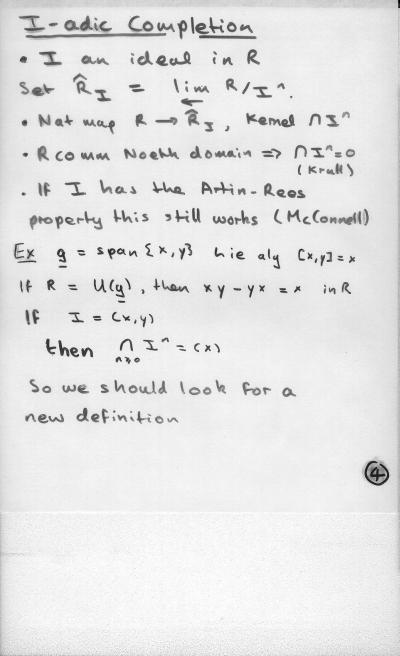 I-adic Completion
• I an ideal in R
Set R̂_I = lim← R/Iⁿ.
• Nat map R → R̂_I, Kernel ∩Iⁿ
• R comm Noeth domain => ∩Iⁿ=0
(Krull)
• If I has the Artin-Rees
property this still works (McConnell)
Ex g = span {x,y} Lie alg [x,y]=x
If R = U(g), then xy-yx = x in R
If I = (x,y)
then ∩ Iⁿ = (x)
n≥0
So we should look for a
new definition
4